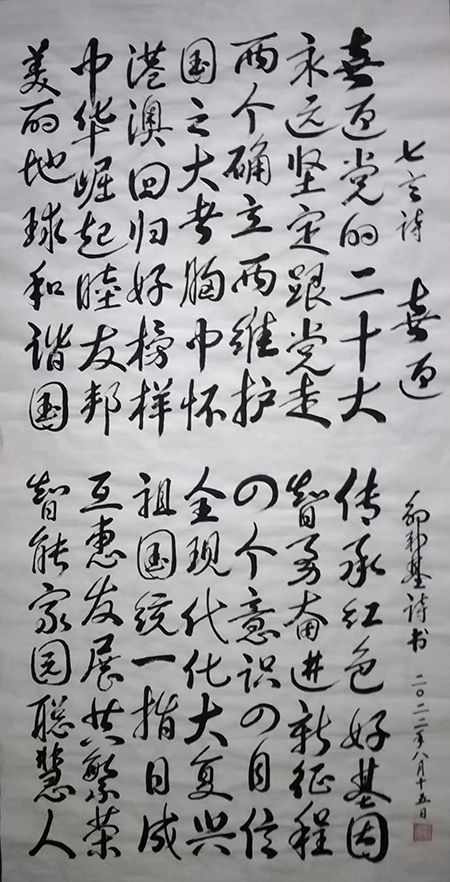 七言诗 喜迎
基诗书 二〇二二年八月十五日
喜迎党的二十大 传承红色好基因
永远坚定跟党走 智勇奋进新征程
两个确立两维护 四个意识四自信
国之大者胸中怀 全现代化大复兴
港澳回归好榜样 祖国统一指日成
中华崛起睦友邦 互惠发展共繁荣
美丽地球和谐国 智能家园聪慧人